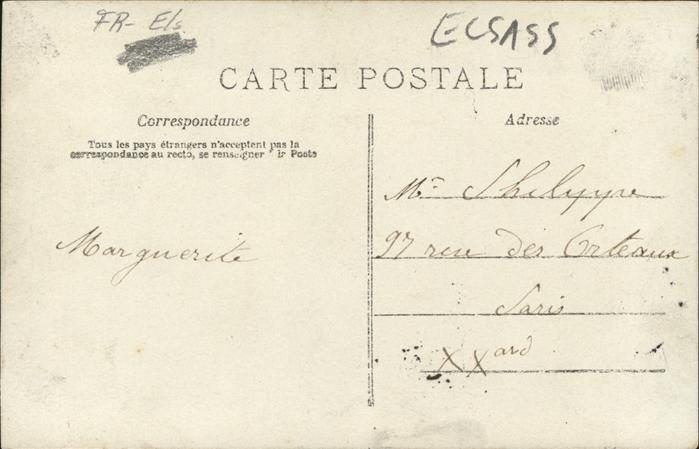 FR- Els
ECSASS
CARTE POSTALE
Correspondance
Tous les pays étrangers n'acceptent pas la
correspondance au recto, se renseigner à la Poste
Marguerite
Adresse
Mr Philyppe
97 rue des Orteaux
Paris
XXard